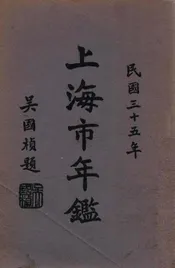 民國三十五年
上海市年鑑
吳國楨題